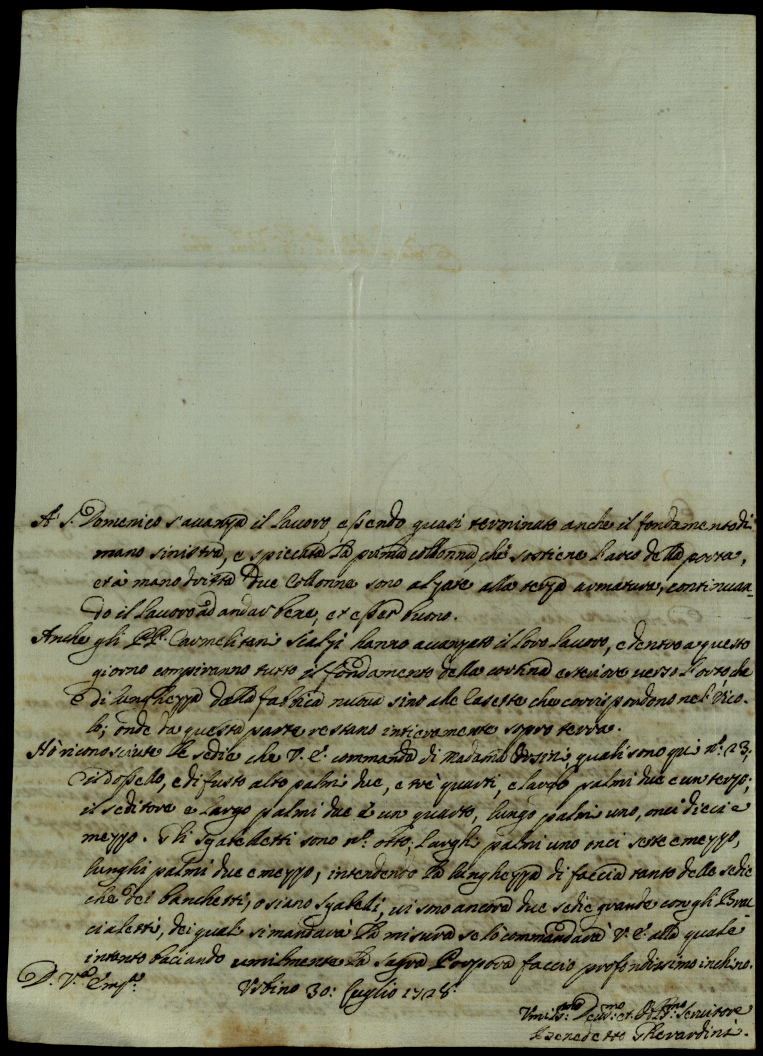 A' S. Domenico s'avanza il lavoro, essendo quasi terminato anche il fondamento di
mano sinistra, e spiccata la prima collonna, che sostiene l'arco della porta,
et à mano dritta due Collonne sono alzate alla terza armatura, continuan-
do il lavoro ad andar bene, et esser buono.
Anche gli PP. Carmelitani Scalzi hanno avanzato il loro lavoro, e dentro a questo
giorno compiranno tutto il fondamento della cortina esteriore verso l'orto che
è di lunghezza della fabbrica nuova sino alle Casette che corrispondono nel Vico-
lo; onde da questa parte restano intieramente sopra terra.
Hò riconosciute le sedie che V. E. commanda di Madama Orsini, quali sono qui n.º 23,
il dossello, e di fusto alto palmi due, e trè quarti, e largo palmi due e un terzo;
il seditore e largo palmi due è un quarto, lungo palmi uno, onci dieci e
mezzo. Gli sgabelletti sono n.º otto, larghi palmi uno onci sette e mezzo,
lunghi palmi due e mezzo, intendendo la lunghezza di faccia tanto delle sedie
che dei banchetti, o siano sgabelli, vi sono ancora due sedie grande con gli Brac-
cialetti, dei quali si mandarà la misura se lo commandarà V. E. alla quale
intanto baciando umilmente la sagra Porpora faccio profondissimo inchino.
D. V.ª Em.ª
Urbino 30: Luglio 1728:
Umilis.mo Devo.mo et Obl.mo Servitore
Benedetto Gherardini.